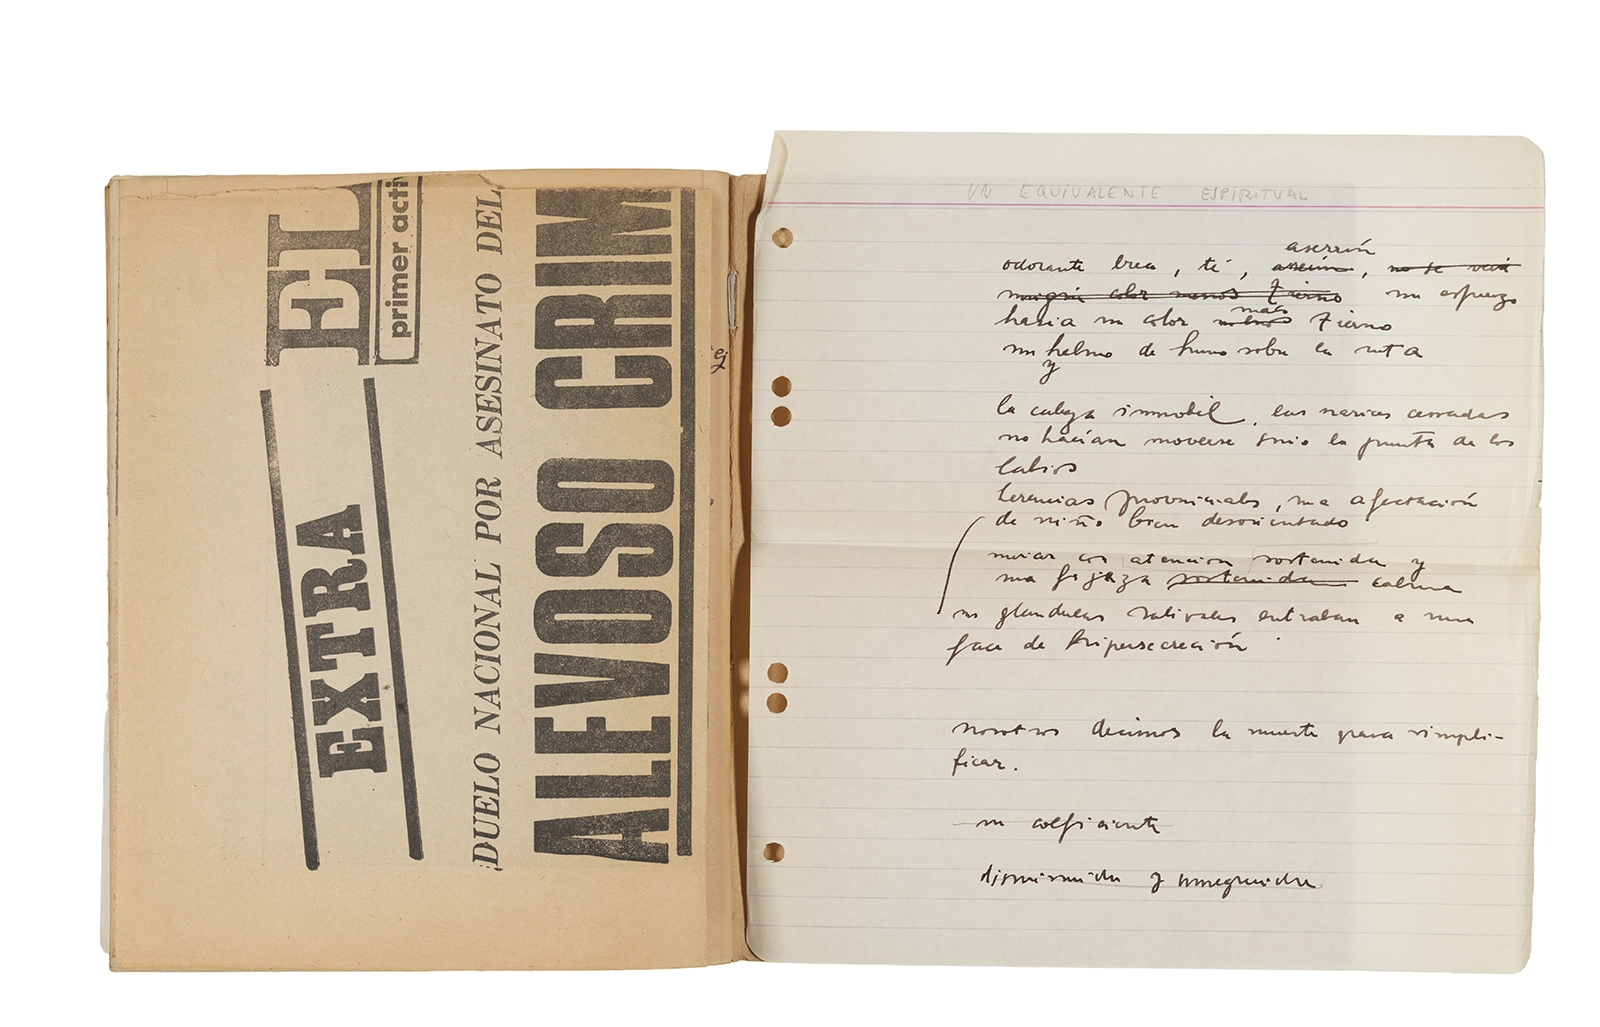 EL
primer acti
EXTRA
DUELO NACIONAL POR ASESINATO DEL
ALEVOSO CRIM
UN EQUIVALENTE ESPIRITUAL
aserrín
odorante brea, té, aserrín, no se veía
ningún color menos tierno un esfuerzo
más
hacia un color menos tierno
un yelmo de humo sobre la ruta
y
la cabeza inmobil, las narices cerradas
no hacían moverse sino la punta de los
labios
herencias provinciales, una afectación
de niño bien desorientado
mirar con atencion sostenida y
una fijeza sostenida calma
glandulas salivales entraban a una
face de hipersecreción
nosotros decimos la muerte para simpli-
ficar.
un coeficiente
disminuida y